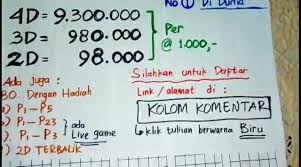 No ① Di Dunia
4D = 9.300.000
3D = 980.000
2D = 98.000
Per
@ 1.000,-
Ada Juga :
BO. Dengan Hadiah
) P1 – P5
) P1 – P23
). P1 – P3
ada
Live game
) 2D TERBALIK
Silahkan untuk Daftar
Link / alamat di :
KOLOM KOMENTAR
klik tulisan berwarna Biru